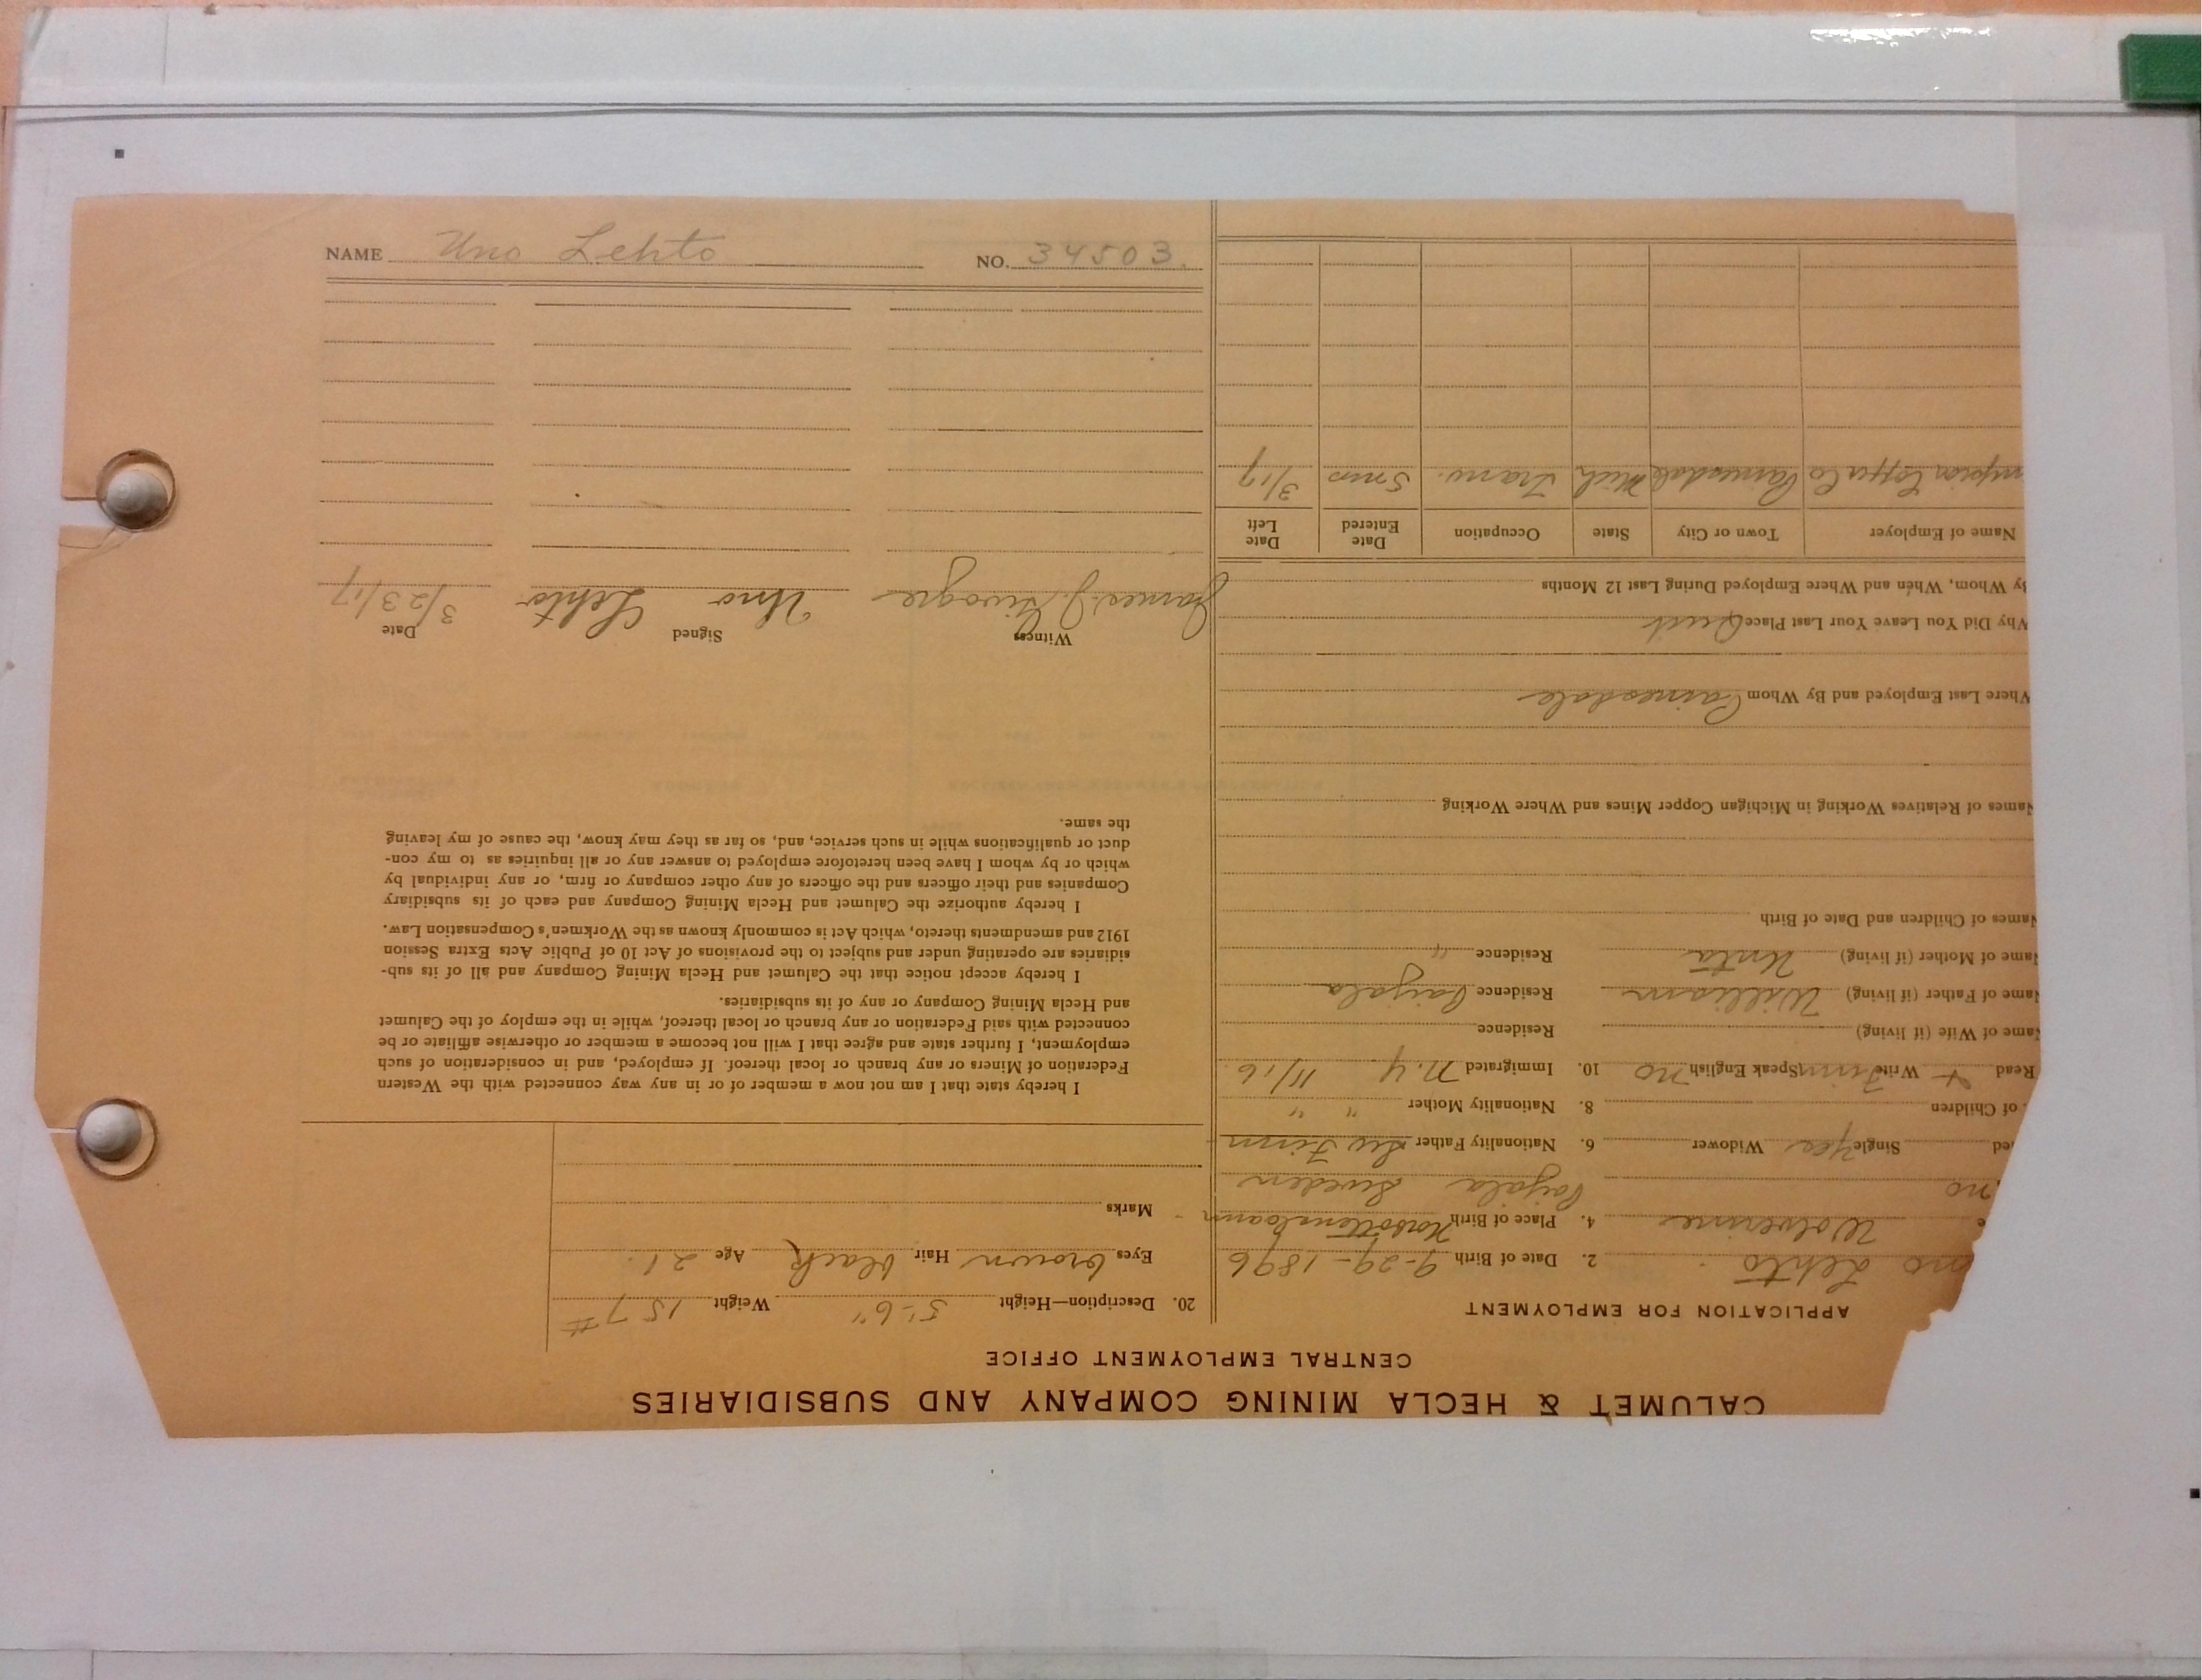 NAME Uno Lehto NO. 34503.
CALUMET & HECLA MINING COMPANY AND SUBSIDIARIES
CENTRAL EMPLOYMENT OFFICE
APPLICATION FOR EMPLOYMENT
no Lehto 2. Date of Birth 9-29-1896
e Wolverine 4. Place of Birth
no Pajala Sweden
ed Single yes Widower 6. Nationality Father Swe Finn
of Children 8. Nationality Mother " "
Read + Write Finn Speak English no 10. Immigrated N.Y 11/16
Name of Wife (if living) Residence
Name of Father (if living) William Residence Pajala
Name of Mother (if living) Residence "
Names of Children and Date of Birth
Names of Relatives Working in Michigan Copper Mines and Where Working
Where Last Employed and By Whom Painesdale
Why Did You Leave Your Last Place Quit
By Whom, When and Where Employed During Last 12 Months
Name of Employer Town or City State Occupation Date Entered Date Left
mpion Copper Co Painesdale Mich Tram. 5 mos 3/17
20. Description—Height 5'-6" Weight 157#
Eyes brown Hair black Age 21.
Marks
I hereby state that I am not now a member of or in any way connected with the Western
Federation of Miners or any branch or local thereof. If employed, and in consideration of such
employment, I further state and agree that I will not become a member or otherwise affiliate or be
connected with said Federation or any branch or local thereof, while in the employ of the Calumet
and Hecla Mining Company or any of its subsidiaries.
I hereby accept notice that the Calumet and Hecla Mining Company and all of its sub-
sidiaries are operating under and subject to the provisions of Act 10 of Public Acts Extra Session
1912 and amendments thereto, which Act is commonly known as the Workmen's Compensation Law.
I hereby authorize the Calumet and Hecla Mining Company and each of its subsidiary
Companies and their officers and the officers of any other company or firm, or any individual by
which or by whom I have been heretofore employed to answer any or all inquiries as to my con-
duct or qualifications while in such service, and, so far as they may know, the cause of my leaving
the same.
Witness Signed Date
James J Uno Lehto 3/23/17